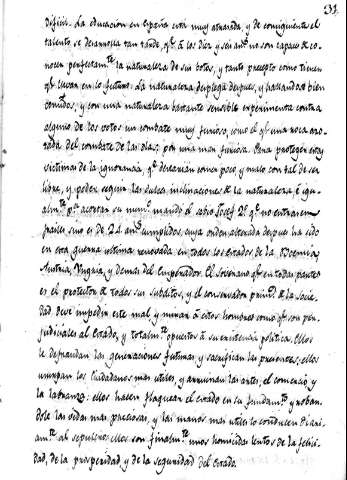 231.
dificil. La educacion en España está muy atrasada, y de consiguiente el
talento se desarrolla tan tarde, qe. á los diez y seis as. no son capaces de co-
nocer perfectamte. la naturaleza de sus votos, y tanto precepto como tienen
qe. llevar en lo futuro. La naturaleza desplega despues, y hallandose bien
comidos, y con una naturaleza bastante sensible experimenta contra
alguno de los votos un combate muy furioso, como el qe. una roca azo-
tada del combate de las olas, por una mar furiosa. Para proteger estas
victimas de la ignorancia, qe. desearian como poco, y malo con tal de ser
libre, y poder seguir las dulces inclinaciones de la naturaleza, é igu-
almte. pa. acertar su mandó el sabio Josef 2º. qe. no entrasen
frailes sino es de 24 as. cumplidos, cuya orden alterada despues ha sido
en esta guerra ultima renovada en todos los Estados de la Bohemia,
Austria, Ungria, y demas del Emperador. El Soverano qe. en todas partes
es el protector de todos sus subditos, y el conservador de la Socie-
dad deve impedir este mal, y mirar á estos hombres como qe. son per-
judiciales al Estado, y totalmte. opuestos á su existencia politica. Ellos
le defraudan las generaciones futuras, y sacrifican las presentes; ellos
usurpan los Ciudadanos mas utiles, y arruinan las artes, el comercio, y
la labranza: ellos hacen flaquear el estado en su fundamto. y roban-
dole las vidas mas preciosas, y las manos mas utiles lo conducen
al sepulcro: ellos son finalmte. unos homicidas lentos de la felici-
dad, de la prosperidad, y de la seguridad del Estado.